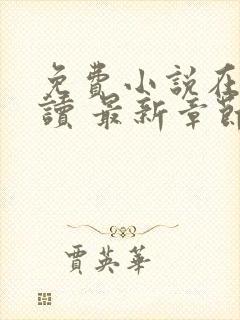 免費小說在
讀 最新章節
賈英華